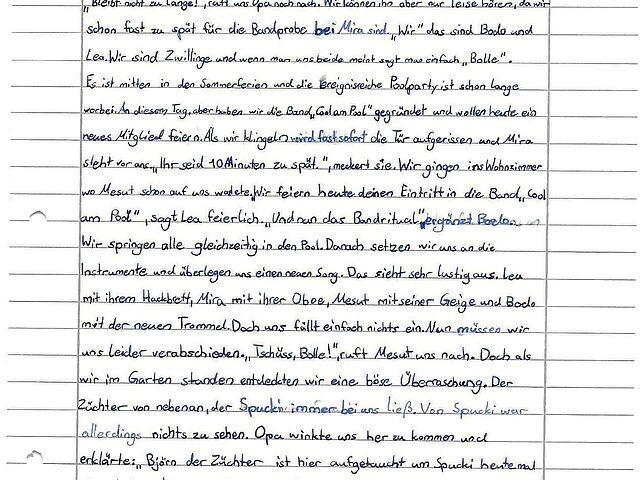 "Bleibt nicht zu lange!", ruft uns Opa noch nach. Wir können ihn aber nur leise hören, da wir
schon fast zu spät für die Bandprobe bei Mira sind. „Wir" das sind Bodo und
Lea. Wir sind Zwillinge und wenn man uns beide meint sagt man einfach „Bolle".
Es ist mitten in den Sommerferien und die ereignisreiche Poolparty ist schon lange
vorbei. An diesem Tag, aber haben wir die Band „Cool am Pool" gegründet und wollen heute ein
neues Mitglied feiern. Als wir klingeln wird fast sofort die Tür aufgerissen und Mira
steht vor uns. „Ihr seid 10 Minuten zu spät.", meckert sie. Wir gingen ins Wohnzimmer
wo Mesut schon auf uns wartete. „Wir feiern heute deinen Eintritt in die Band „Cool
am Pool"", sagt Lea feierlich. „Und nun das Bandritual", ergänzt Bodo.
Wir springen alle gleichzeitig in den Pool. Danach setzen wir uns an die
Instrumente und überlegen uns einen neuen Song. Das sieht sehr lustig aus. Lea
mit ihrem Hackbrett, Mira mit ihrer Oboe, Mesut mit seiner Geige und Bodo
mit der neuen Trommel. Doch uns fällt einfach nichts ein. Nun müssen wir
uns leider verabschieden. „Tschüss, Bolle!", ruft Mesut uns nach. Doch als
wir im Garten standen entdeckten wir eine böse Überraschung. Der
Züchter von nebenan, der Spucki immer bei uns ließ. Von Spucki war
allerdings nichts zu sehen. Opa winkte uns her zu kommen und
erklärte: „Björn der Züchter ist hier aufgetaucht um Spucki heute mal